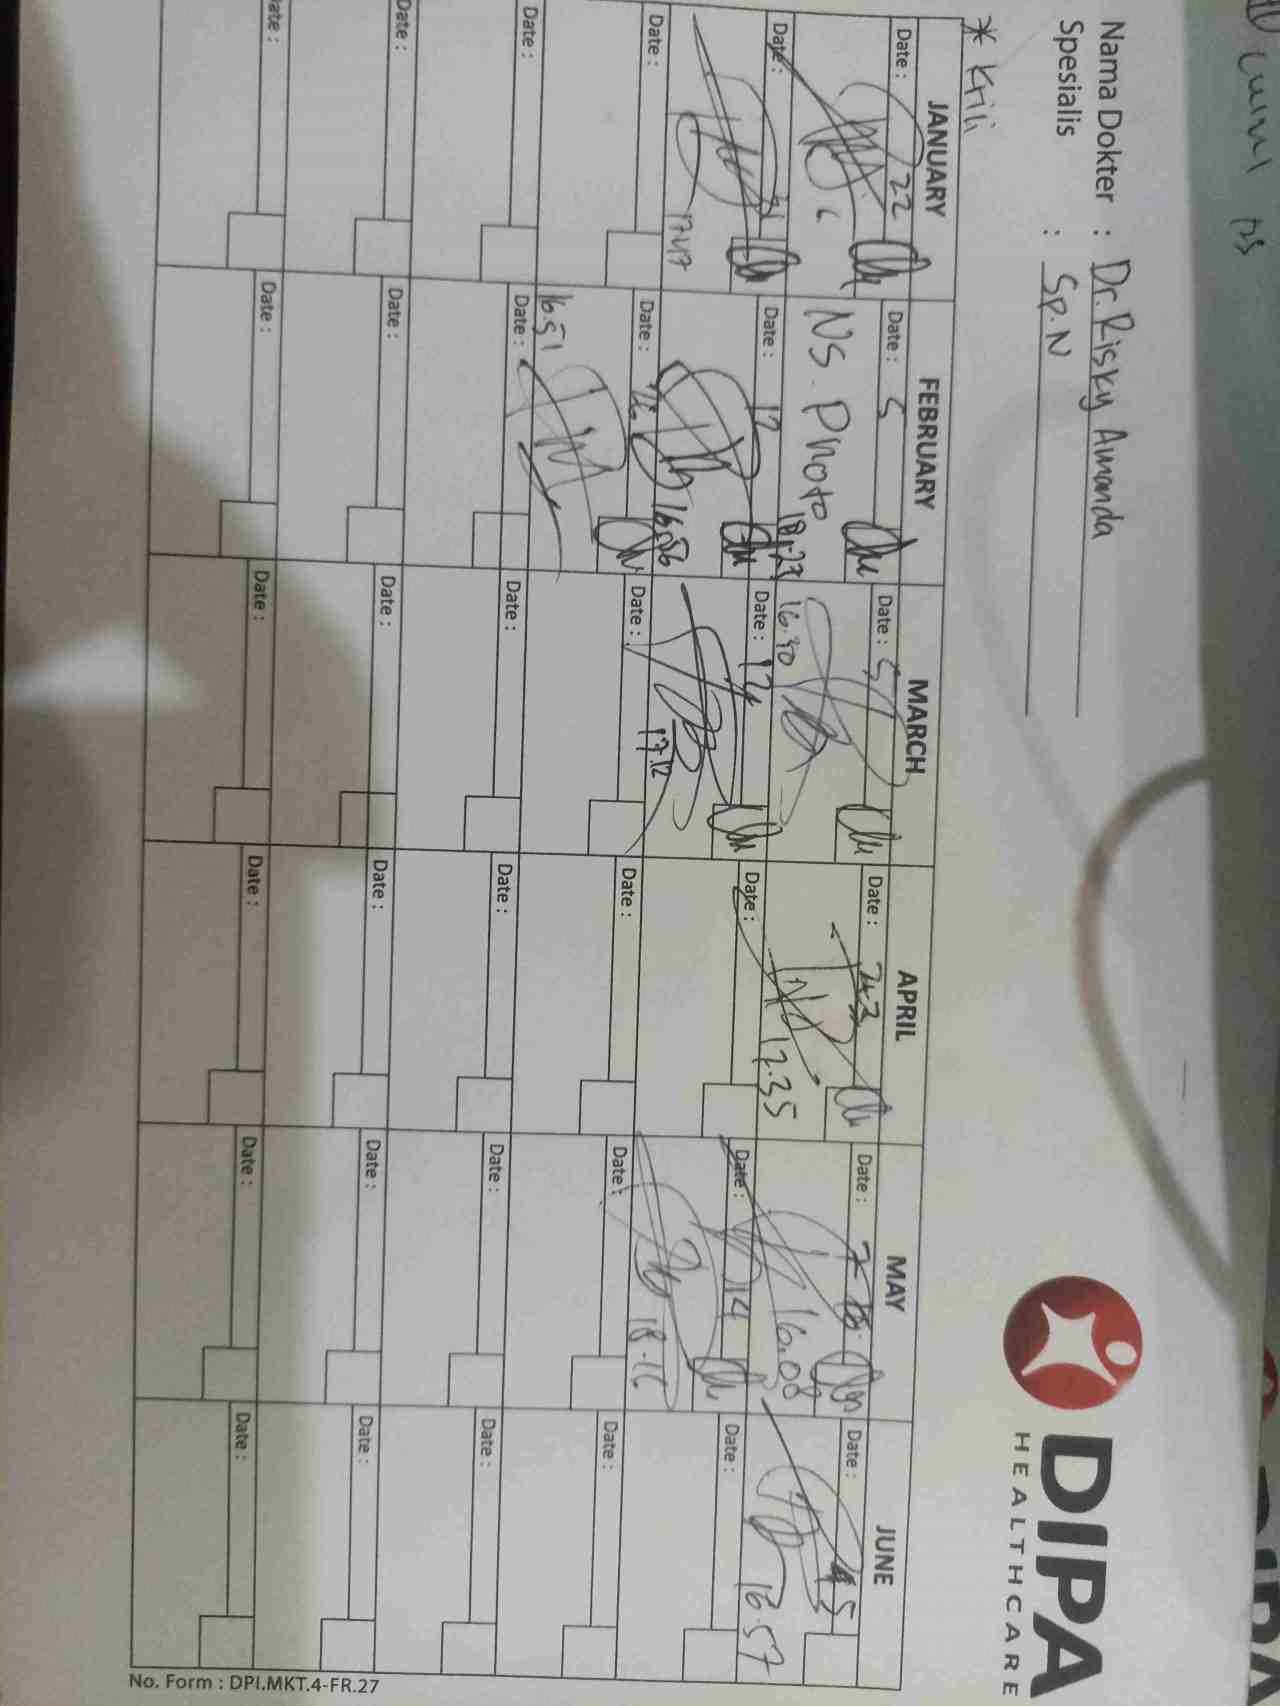 Nama Dokter : Dr. Risky Amanda
Spesialis : Sp.N
DIPA
HEALTHCARE
* Krili
JANUARY FEBRUARY MARCH APRIL MAY JUNE
Date : 22 Date : 5 Date : 5 Date : Date : 7 Date :
NS. Photo 18.23 16.40 17.35 16.08 16.57
Date : Date : 12 Date : 12 Date : Date : 14 Date :
17.47 16.56 17.12 18.16
Date : Date : 26 Date : Date : Date : Date :
16.51
Date : Date : Date : Date : Date : Date :
Date : Date : Date : Date : Date : Date :
Date : Date : Date : Date : Date : Date :
No. Form : DPI.MKT.4-FR.27